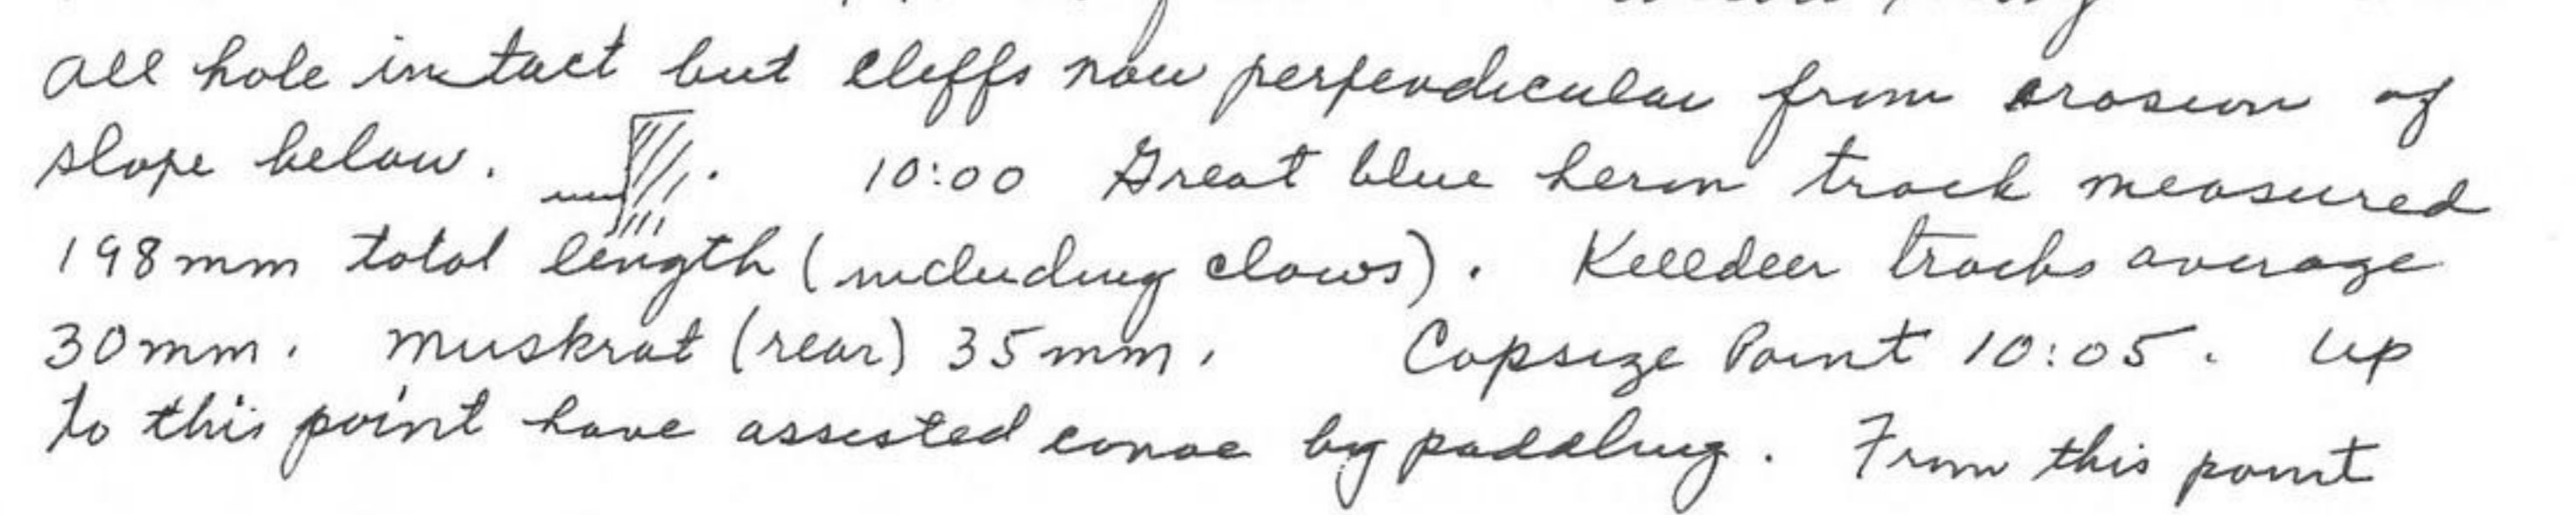 all hole intact but cliffs now perpendicular from erosion of
slope below. 10:00 Great blue heron track measured
198mm total length (including claws). Killdeer tracks average
30mm. Muskrat (rear) 35mm. Capsize Point 10:05. Up
to this point have assisted canoe by paddling. From this point